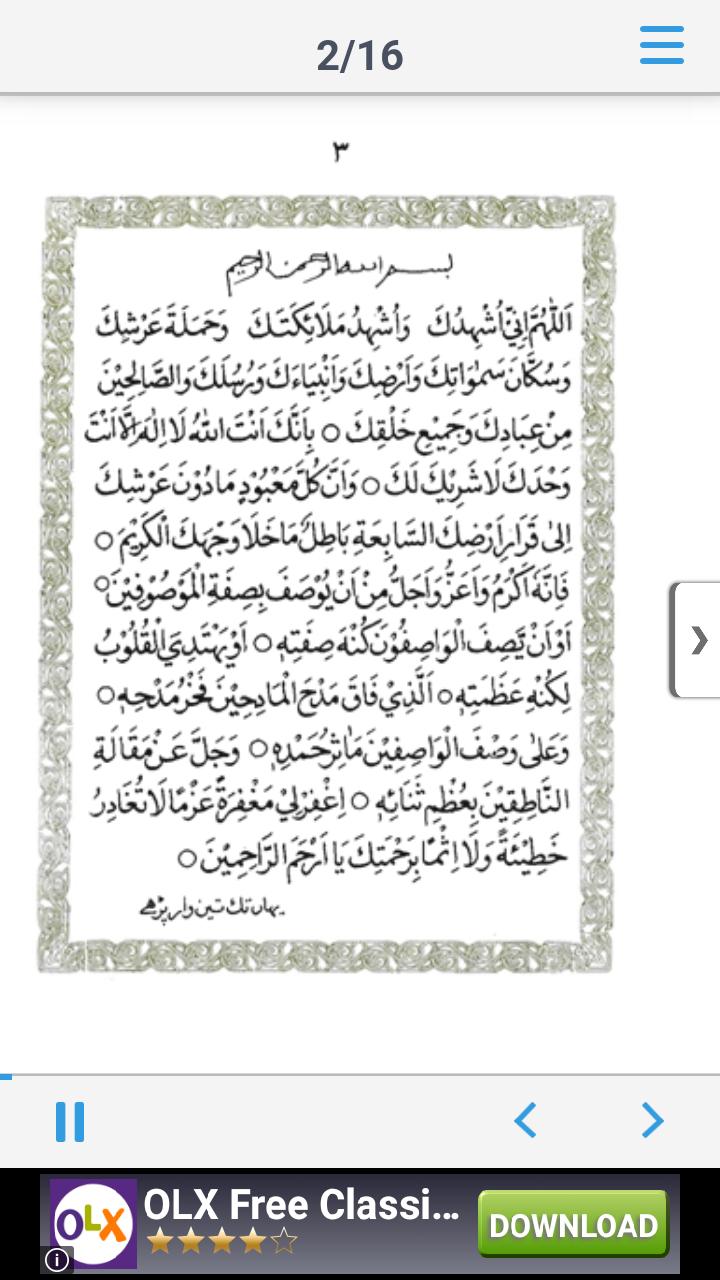 2/16
٣
بسم الله الرحمن الرحيم
اَللّٰهُمَّ اِنِّيْ اُشْهِدُكَ وَاُشْهِدُ مَلَائِكَتَكَ وَحَمَلَةَ عَرْشِكَ
وَسُكَّانَ سَمٰوَاتِكَ وَاَرْضِكَ وَاَنْبِيَاءَكَ وَرُسُلَكَ وَالصَّالِحِيْنَ
مِنْ عِبَادِكَ وَجَمِيْعِ خَلْقِكَ ○ بِاَنَّكَ اَنْتَ اللّٰهُ لَا اِلٰهَ اِلَّا اَنْتَ
وَحْدَكَ لَا شَرِيْكَ لَكَ ○ وَاَنَّ كُلَّ مَعْبُوْدٍ مَادُوْنَ عَرْشِكَ
اِلٰى قَرَارِ اَرْضِكَ السَّابِعَةِ بَاطِلٌ مَا خَلَا وَجْهَكَ الْكَرِيْمَ ○
فَاِنَّهٗ اَكْرَمُ وَاَعَزُّ وَاَجَلُّ مِنْ اَنْ يُوْصَفَ بِصِفَةِ الْمَوْصُوْفِيْنَ ○
اَوْ اَنْ تَصِفَ الْوَاصِفُوْنَ كُنْهَ صِفَتِهٖ ○ اَوْ يَهْتَدِيَ الْقُلُوْبُ
لِكُنْهِ عَظَمَتِهٖ ○ اَلَّذِيْ فَاقَ مَدْحَ الْمَادِحِيْنَ فَخْرُ مَدْحِهٖ ○
وَعَلٰى وَصْفَ الْوَاصِفِيْنَ مَاٰثِرُ حَمْدِهٖ ○ وَجَلَّ عَنْ مَقَالَةِ
النَّاطِقِيْنَ بِعُظْمِ ثَنَائِهٖ ○ اِغْفِرْلِيْ مَغْفِرَةً عَزْمًا لَا تُغَادِرُ
خَطِيْئَةً وَلَا اِثْمًا بِرَحْمَتِكَ يَا اَرْحَمَ الرَّاحِمِيْنَ ○
يهاں تک تين وار پڑھے
OLX
OLX Free Classi...
DOWNLOAD